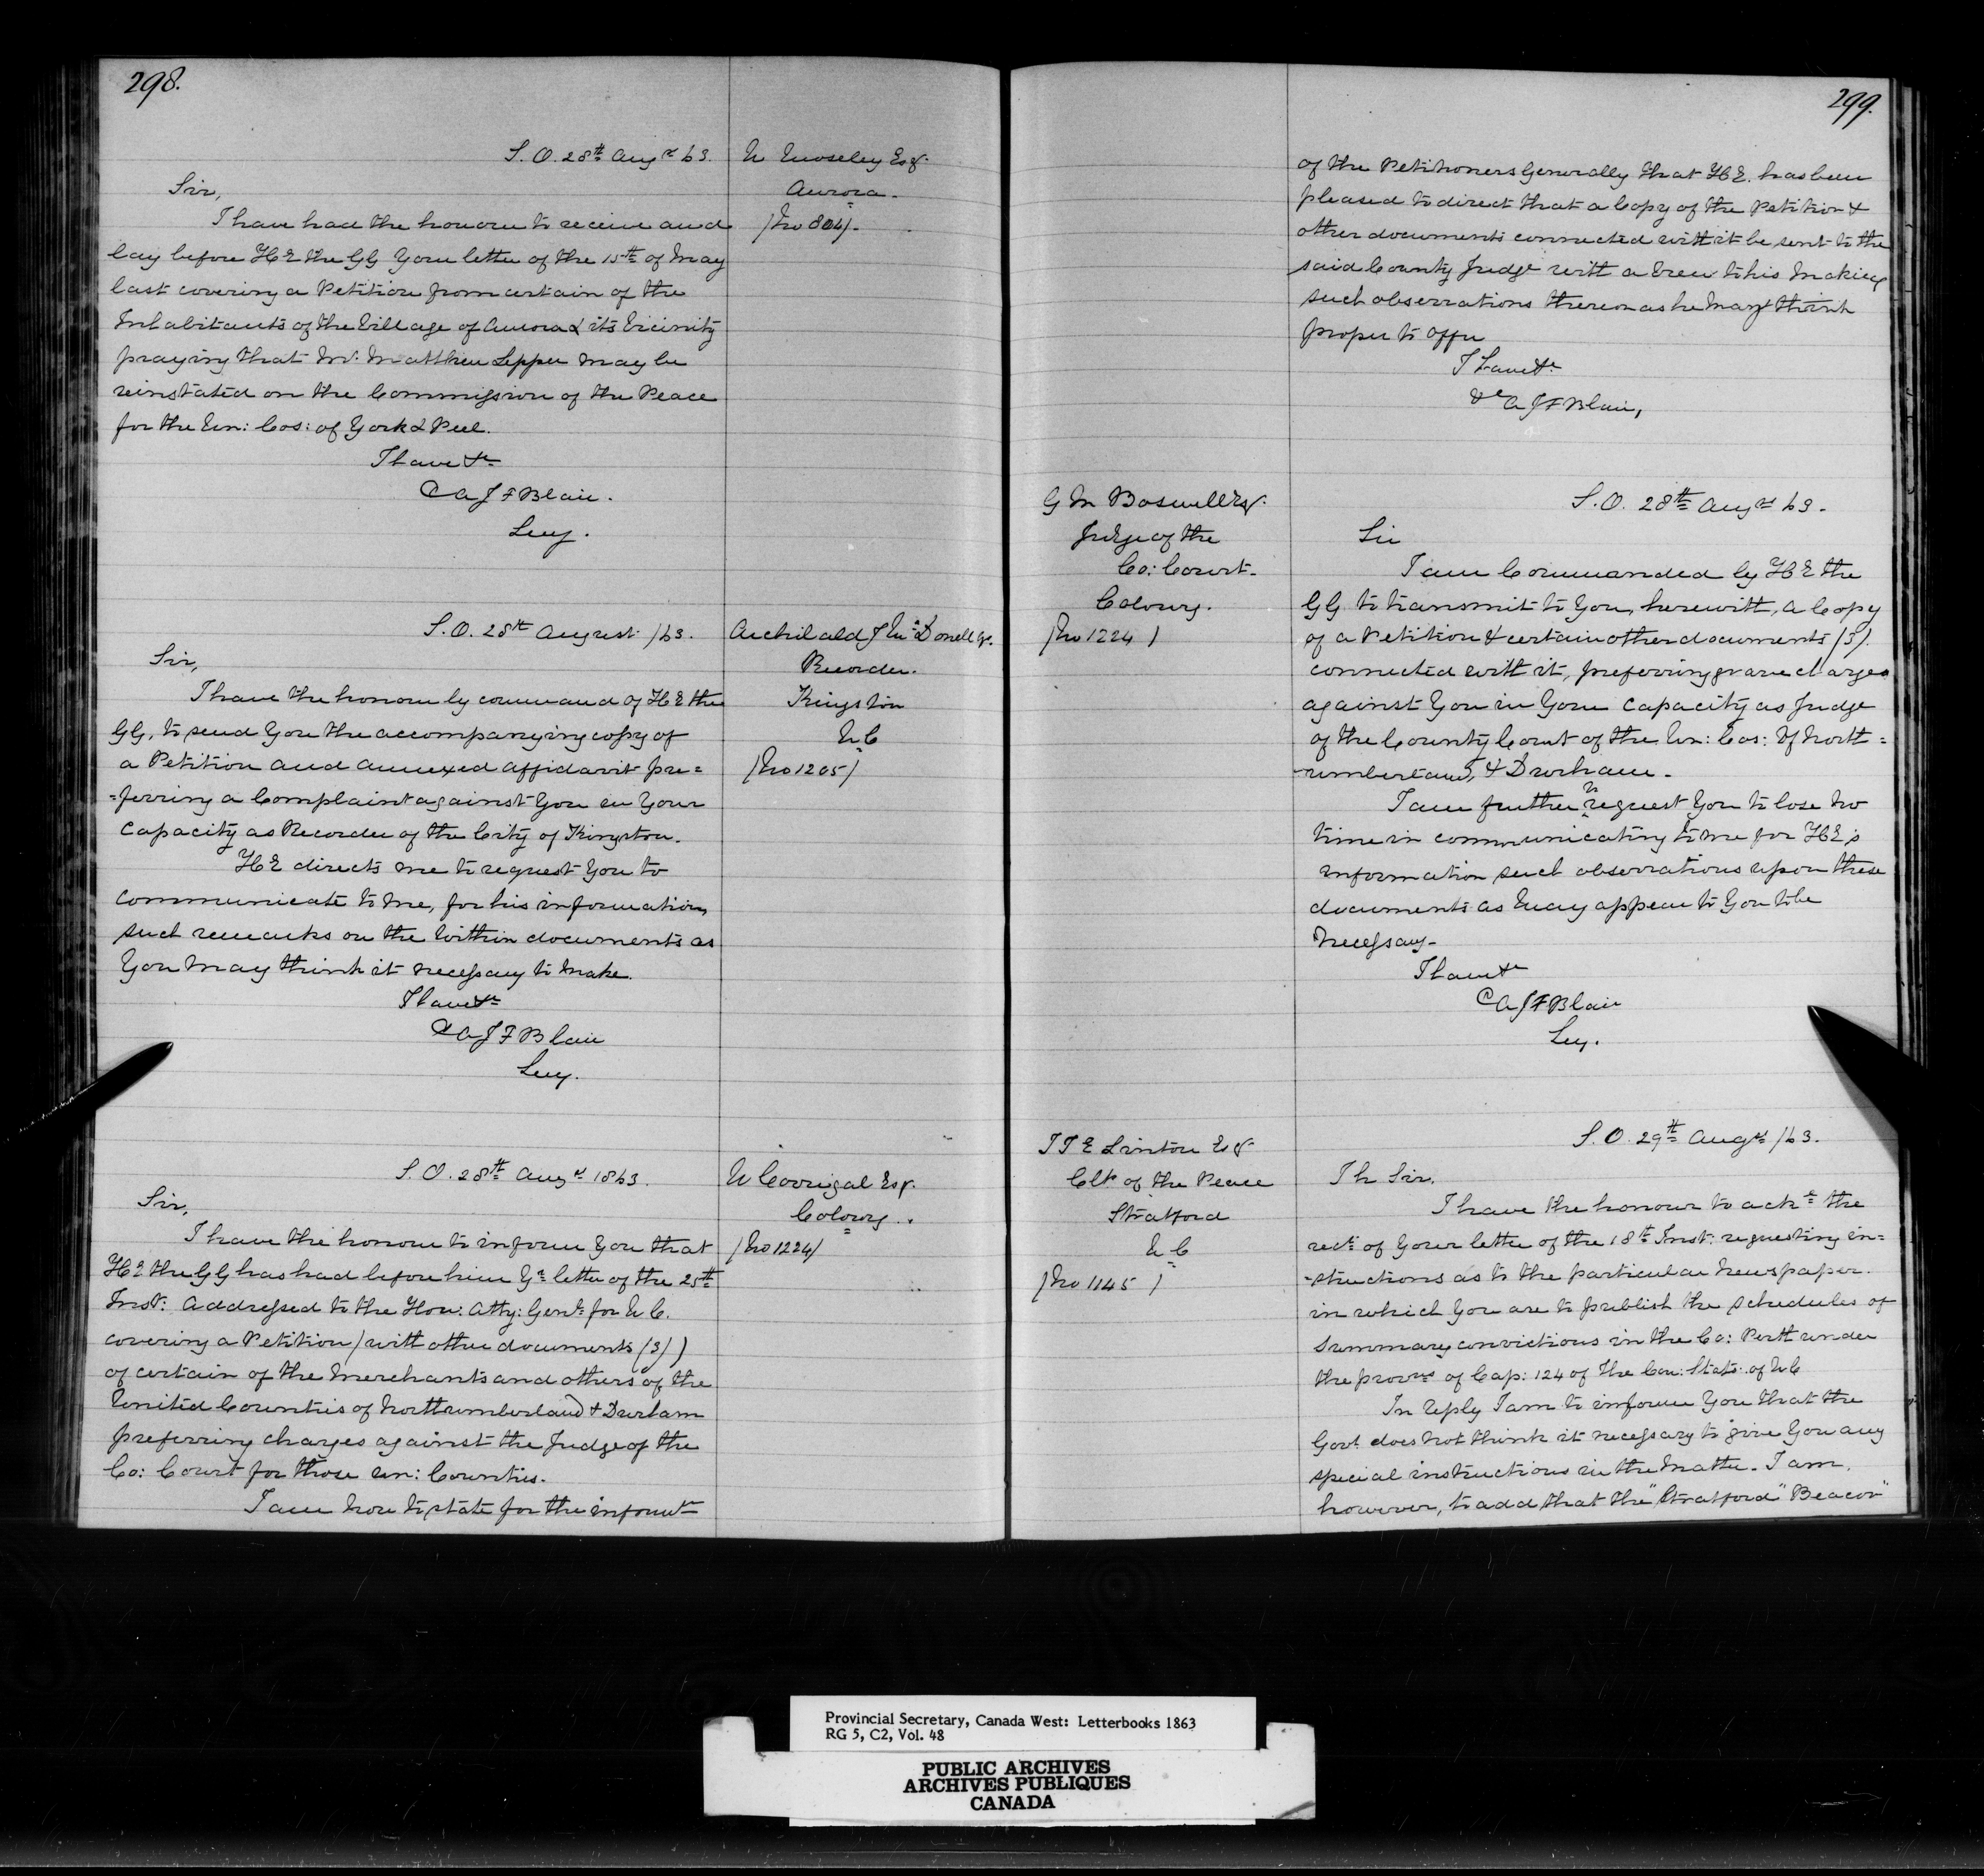 298.
S.O. 28th Augst 63.
W Moseley Esqr.
Aurora.
/No 804/.
Sir,
I have had the honour to receive and
lay before H E the GG Your letter of the 15th of May
last covering a Petition from certain of the
Inhabitants of the Village of Aurora & its Vicinity
praying that Mr. Matthew Lepper may be
reinstated on the Commission of the Peace
for the Un: Cos: of York & Peel.
I have &c
A J F Blair.
Secy.
S.O. 28th August /63.
Archibald J McDonell Esqr.
Recorder.
Kingston
U C
/No 1205/
Sir,
I have the honour by command of H E the
GG, to send You the accompanying copy of
a Petition and annexed affidavit pre=
=ferring a Complaint against You in Your
Capacity as Recorder of the City of Kingston.
H E directs me to request You to
communicate to me, for his information,
such remarks on the within documents as
You May think it necessary to make.
I have &c
A J F Blair
Secy.
S.O. 28th Augst 1863.
W Corrigal Esqr.
Cobourg.
/No 1224/
Sir,
I have the honour to inform You that
H E the GG has had before him Yr letter of the 25th
Inst: Addressed to the Hon: Atty: Genl: for U C.
covering a Petition / with other documents (3) )
of certain of the Merchants and others of the
United Counties of Northumberland & Durham
preferring charges against the Judge of the
Co: Court for those Un: Counties.
I am Now to state for the informtn
299.
of the Petitioners Generally that H E. has been
pleased to direct that a Copy of the Petition &
other documents connected with it be sent to the
said County Judge with a view to his Making
such observations thereon as he May think
proper to offer
I have &c
A J F Blair,
G M Boswell Esqr.
Judge of the
Co: Court.
Cobourg.
/No 1224 /
S.O. 28th Augst 63.
Sir
I am Commanded by H E the
GG. to transmit to You, herewith, a Copy
of a Petition & certain other documents (3).
connected with it, preferring grave charges
against You in Your Capacity as Judge
of the County Court of the Un: Cos: of North=
=umberland, & Durham.
I am further to request You to lose No
time in communicating to me for H E's
information such observations upon these
documents as May appear to You to be
Necessary.
I have &c
A J F Blair
Secy.
T J E Linton Esqr
Clk of the Peace
Stratford
U C
/No 1145 /
S.O. 29th Augst /63.
Sir,
I have the honour to acke the
rect: of Your letter of the 18th Inst: requesting in=
=structions as to the particular Newspaper.
in which You are to publish the Schedules of
Summary convictions in the Co: Perth under
the provns of Cap: 124 of the Con: Stats: of U C
In reply I am to inform You that the
Govt does Not think it necessary to give You any
special instructions in the Matter. I am,
however, to add that the "Stratford" Beacon"
Provincial Secretary, Canada West: Letterbooks 1863
RG 5, C2, Vol. 48
PUBLIC ARCHIVES
ARCHIVES PUBLIQUES
CANADA